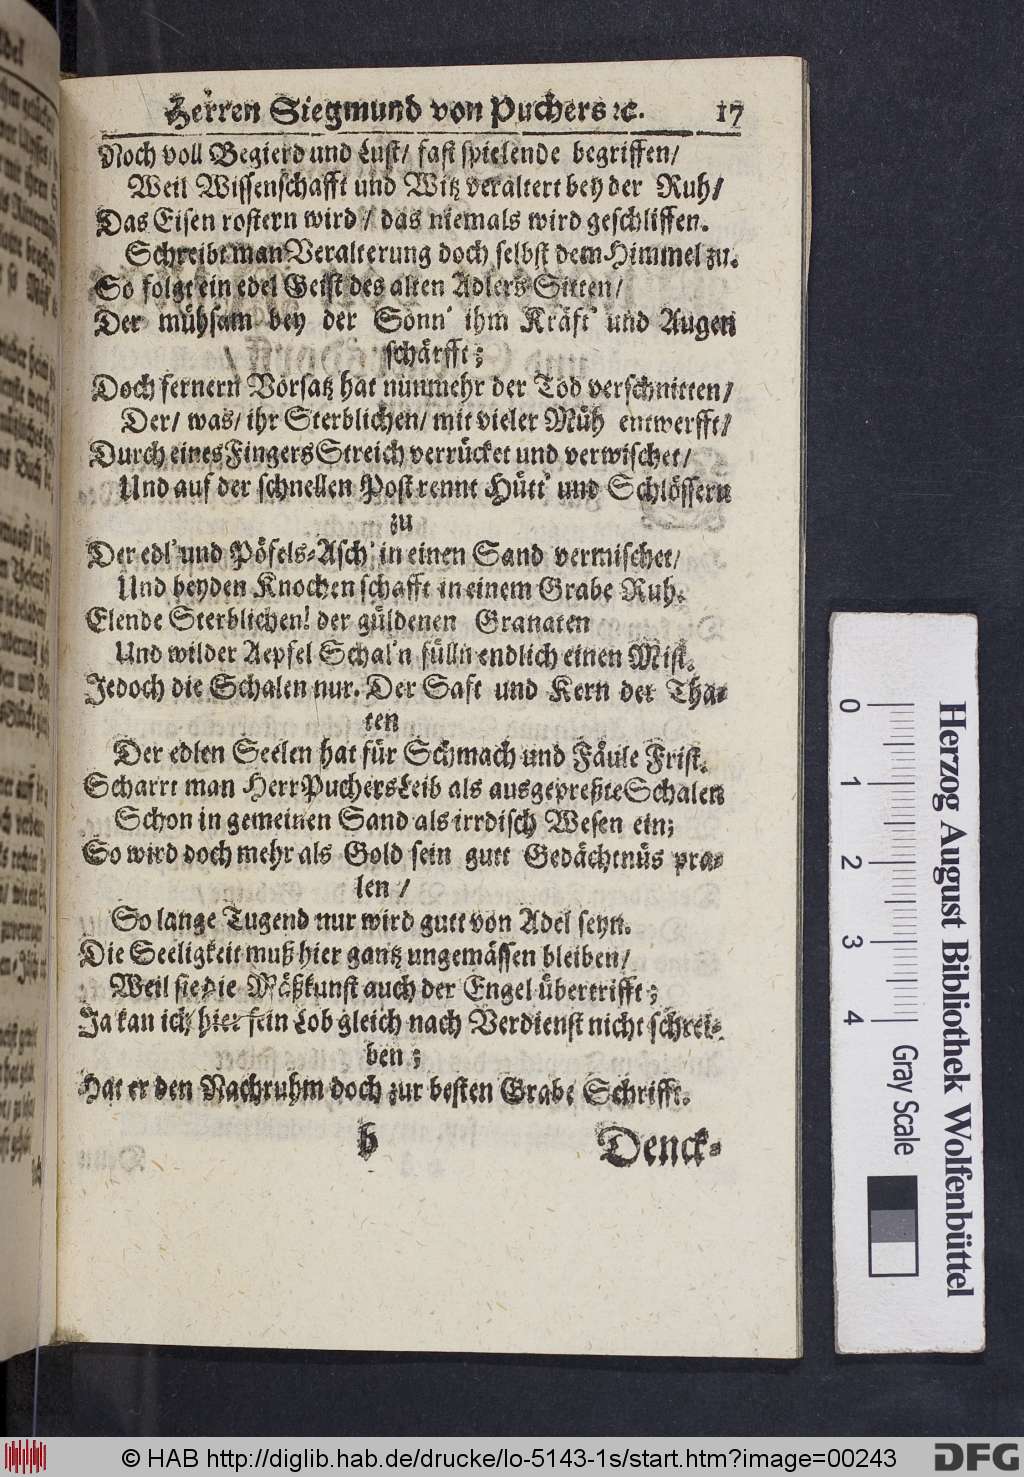 Herren Siegmund von Puchers ꝛc. 17
Noch voll Begierd und Lust/ fast spielende begriffen/
Weil Wissenschafft und Witz veraltert bey der Ruh/
Das Eisen rostern wird/ das niemals wird geschliffen.
Schreibt man Veralterung doch selbst dem Himmel zu.
So folgt ein edel Geist des alten Adlers Sitten/
Der mühsam bey der Sonn' ihm Kräft' und Augen
schärfft;
Doch fernern Vorsatz hat nunmehr der Tod verschnitten/
Der/ was/ ihr Sterblichen/ mit vieler Müh entwerfft/
Durch eines Fingers Streich verrücket und verwischet/
Und auf der schnellen Post rennt Hütt' und Schlössern
zu
Der edl' und Pöfels-Asch' in einen Sand vermischet/
Und beyden Knochen schafft in einem Grabe Ruh.
Elende Sterblichen! der güldenen Granaten
Und wilder Aepfel Schal'n fülln endlich einen Mist.
Jedoch die Schalen nur. Der Saft und Kern der Tha-
ten
Der edlen Seelen hat für Schmach und Fäule Frist.
Scharrt man Herr Puchers Leib als ausgepreßte Schalen
Schon in gemeinen Sand als irrdisch Wesen ein;
So wird doch mehr als Gold sein gutt Gedächtnüs pra-
len /
So lange Tugend nur wird gutt von Adel seyn.
Die Seeligkeit muß hier gantz ungemässen bleiben/
Weil sie die Mäßkunst auch der Engel übertrifft;
Ja kan ich hier sein Lob gleich nach Verdienst nicht schrei-
ben;
Hat er den Nachruhm doch zur besten Grabe Schrifft.
b Denck-
0 1 2 3 4 Gray Scale
Herzog August Bibliothek Wolfenbüttel
© HAB http://diglib.hab.de/drucke/lo-5143-1s/start.htm?image=00243
DFG